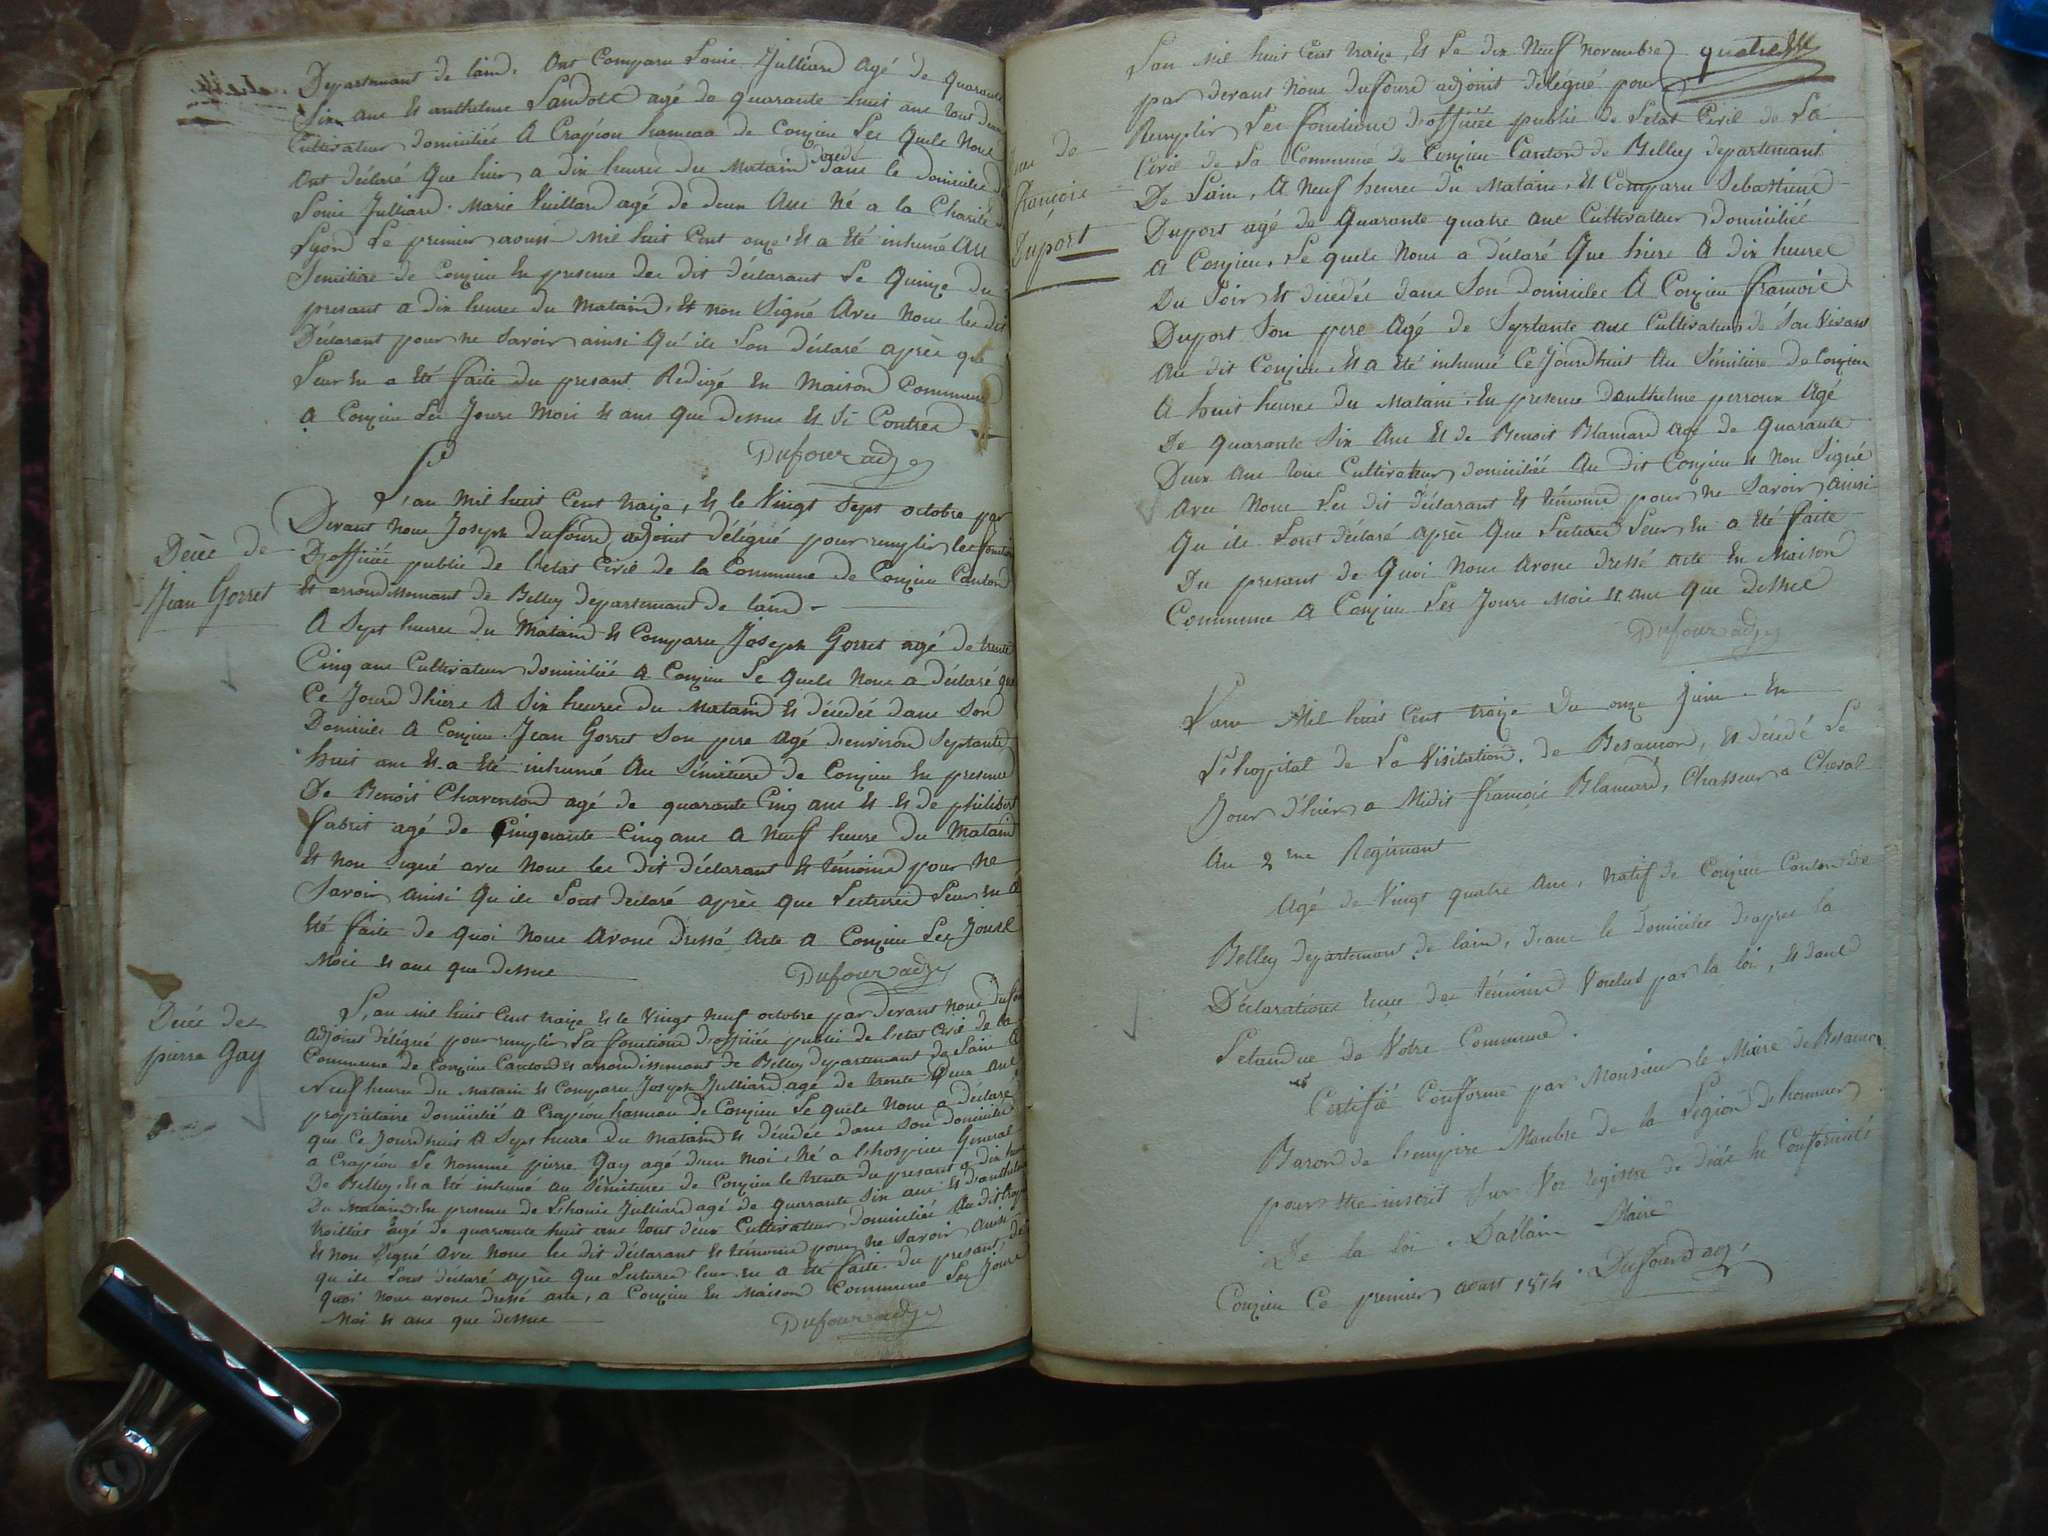 Departemant de lain. Ont Comparu Louis Julliard agé de quarante
Six ans Et anthelme Landoll agé de quarante huit ans tous deux
Cultivateur domiciliés A Crapéou hameau de Conzieu Les quels Nous
ont déclaré Que hier a dix heures du Mataind décédé dans le domicile
Louis Julliard. Marie Vuillard agé de deux Ans Né a la Charité
Lyon Le premier aoust Mil huit Cent onze, Et a Eté inhumé Au
Semitiere de Conzieu En presence des dit déclarant Le Quinze du
presant a dix heures du Mataind, Et non Signé Avec Nous les dit
Déclarant pour ne Savoir ainsi Qu'ils Son déclaré après que
Leur En a Eté faite du presant Rédigé En Maison Commune
A Conzieu Les Jours Mois Et ans que dessus Et Si Contres
Dufour adj
L'an Mil huit Cent traize, Et le Vingt Sept octobre par
Devant nous Joseph Dufourd adjoint délégué pour remplir les fonctions
D'officiée public de l'etat Civil de la Commune de Conzieu Cantond
Et arrondissemant de Belley departemant de laind
Décès de
Jean Gorret
A Sept heures du Mataind Et Comparu Joseph Gorret agé de trente
Cinq ans Cultivateur domicilié A Conzieu Le Quels Nous a déclaré que
Ce Jourd'hiere A Six heures du Mataind Et décédée dans Son
Domicile A Conzieu Jean Gorret Son pere agé d'environd Septante
huit ans Et a Eté inhumé Au Sémitiere de Conzieu En presence
De Benoit Charentond agé de quarante Cinq ans Et Et de philibert
fabrit agé de Cinquante Cinq ans A Neuf heure du Mataind
Et Non Signé avec Nous les dit déclarant Et témoind pour Ne
Savoir ainsi Qu ils Sont déclaré après que Lectured Leur En A
Eté faite de quoi Nous Avons Dressé Acte A Conzieu Les Jours
Mois Et ans que dessus
Dufour adj
Décès de
pierre Gay
L'an mil huit Cent traize Et le Vingt Neuf octobre par devant Nous dufour
adjoint délégué pour remplir Les fonctions D'officiée public de l'etat Civil de la
Commune de Conzieu Cantond Et arrondissemant de Belley departemant de Lain A
Neuf heure du Matain Et Comparu Joseph Julliard agé de trente Deux ans
propriétaire domicilié A Crapéou hameau de Conzieu Le quels Nous a déclaré
que Ce Jourdhuit A Sept heure du Mataind Et décédée dans Son domicile
a Crapéou Le Nomme pierre Gay agé d'un Moi, Né a Lhospice General
De Belley, Et a Eté inhumé au Sémitiere de Conzieu le trente du presant a dix heure
Du Mataind En presence de Louis Julliard agé de quarante Six ans Et D'anthelme
agé de quarante huit ans tout deux Cultivateur domicilié Au dit
Et non Signé Avec Nous les dit déclarant Et témoind pour Ne Savoir ainsi
qu ils Sont déclaré après Que Lectured leur en a Eté faite du presant, de
quoi nous avons dressé acte, a Conzieu En Maison Commune Les Jours
Moi Et ans que dessus
Dufour adj
L'an Mil huit Cent traize, Et Le dix Neuf novembre
quatre
par devant Nous dufourd adjoint délégué pour
Remplir Les fonctions D'officiée public de Letat Civil de La
Civil de La Commune de Conzieu Canton de Belley departemant
De Lain, A Neuf heures du Matain, Et Comparu Sebastiend
de
françois
Duport
Duport agé de Quarante quatre ans Cultivateur domicilié
A Conzieu, Le quels Nous a déclaré Que hiere A dix heures
Du Soir Et décédée dans Son domicile A Conzieu françois
Duport Son pere Agé de Septante ans Cultivateur de Son Vivant
Au dit Conzieu, Et a Eté inhumé Ce Jourdhuit Au Sémitiere de Conzieu
A huit heures du Matain, En presence danthelme perroux Agé
De quarante Six Ans Et de Benoit Blancard age de quarante
Deux ans tous Cultivateur domicilié Au dit Conzieu Et Non Signé
Avec Nous Les dit Déclarant Et témoind pour Ne Savoir Ainsi
Qu ils Sont déclaré après Que Lectured Leur En a Eté faite
Du presant de Quoi Nous Avons dressé acte En Maison
Commune A Conzieu Les Jours Mois Et ans que dessus
Dufour adj
L'an Mil huit Cent traize Du onze Juin En
L'hopital de La Visitation, de Besancon, Et décédé Le
Jour d'hier a Midit françois Blancard, Chasseur a Cheval
Au 2me Regimant
Agé de Vingt quatre Ans, natif de Conzieu Canton De
Belley departemant de lain, dans le domicile d'apres la
Déclarations des témoins Voulus par la loi, Et dans
L'etandue de Votre Commune.
Certifié Conforme par Monsieur le Maire de Besancon
Baron de l'empire Manbre de la Légion d'honneur
pour Etre inscrit Sur Vos registre de décès En Conformité
De la loi. Maire
Conzieu Ce premier aoust 1814. Dufourd adj.